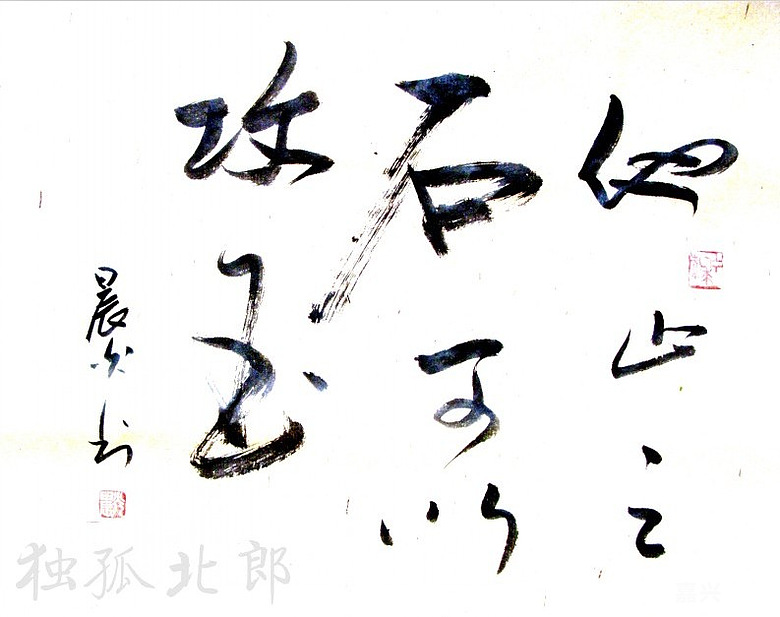 他山之
石可以
攻玉
晨光书
独孤北郎